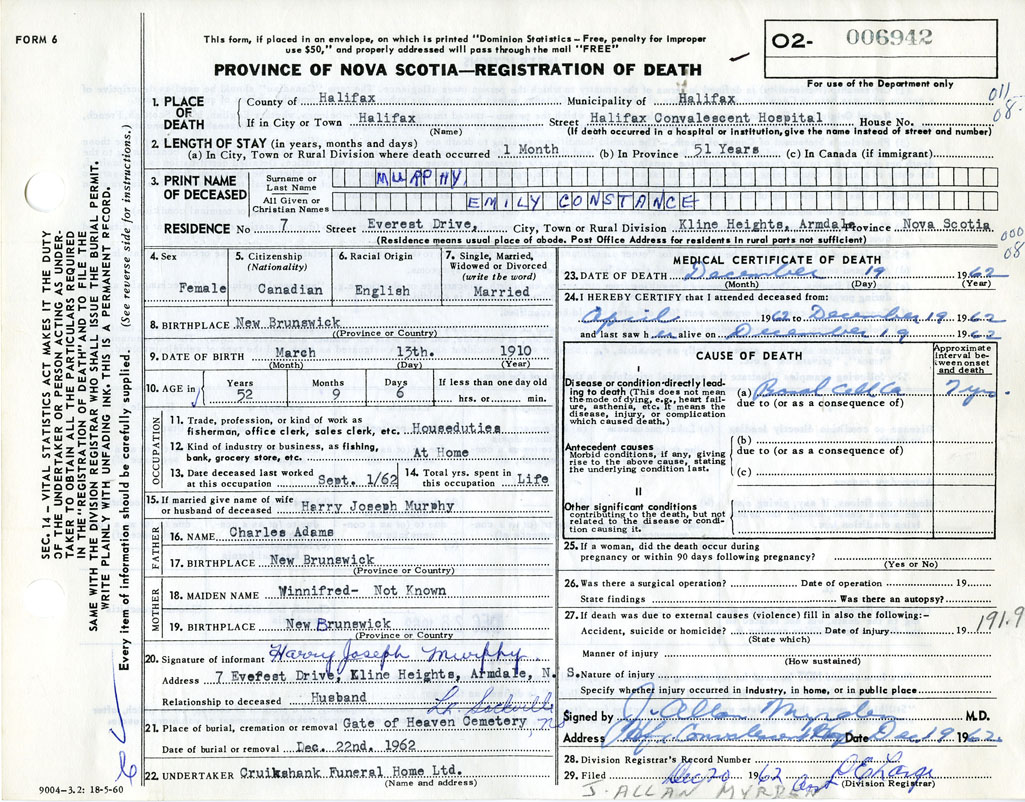 FORM 6
This form, if placed in an envelope, on which is printed "Dominion Statistics – Free, penalty for improper
use $50," and properly addressed will pass through the mail "FREE"
PROVINCE OF NOVA SCOTIA—REGISTRATION OF DEATH
O2- 006942
For use of the Department only
011
08
1. PLACE OF DEATH
County of Halifax Municipality of Halifax
If in City or Town Halifax Street Halifax Convalescent Hospital House No.
(Name) (If death occurred in a hospital or institution, give the name instead of street and number)
2. LENGTH OF STAY (in years, months and days)
(a) In City, Town or Rural Division where death occurred 1 Month (b) In Province 51 Years (c) In Canada (if immigrant)
3. PRINT NAME OF DECEASED
Surname or Last Name MURPHY,
All Given or Christian Names EMILY CONSTANCE
RESIDENCE No 7 Street Everest Drive, City, Town or Rural Division Kline Heights, Armdale Province Nova Scotia
(Residence means usual place of abode. Post Office Address for residents in rural parts not sufficient)
000
08
4. Sex
Female
5. Citizenship
(Nationality)
Canadian
6. Racial Origin
English
7. Single, Married,
Widowed or Divorced
(write the word)
Married
8. BIRTHPLACE New Brunswick
(Province or Country)
9. DATE OF BIRTH March 13th. 1910
(Month) (Day) (Year)
10. AGE in
Years Months Days If less than one day old
52 9 6 hrs. or min.
OCCUPATION
11. Trade, profession, or kind of work as
fisherman, office clerk, sales clerk, etc. Houseduties
12. Kind of industry or business, as fishing,
bank, grocery store, etc. At Home
13. Date deceased last worked
at this occupation Sept. 1/62
14. Total yrs. spent in
this occupation Life
15. If married give name of wife
or husband of deceased Harry Joseph Murphy
FATHER
16. NAME Charles Adams
17. BIRTHPLACE New Brunswick
(Province or Country)
MOTHER
18. MAIDEN NAME Winnifred- Not Known
19. BIRTHPLACE New Brunswick
(Province or Country)
20. Signature of informant Harry Joseph Murphy
Address 7 Evefest Drive, Kline Heights, Armdale, N. S.
Relationship to deceased Husband
Lr. Sackville
NS
21. Place of burial, cremation or removal Gate of Heaven Cemetery
Date of burial or removal Dec. 22nd. 1962
22. UNDERTAKER Cruikshank Funeral Home Ltd.
(Name and address)
9004-3.2: 18-5-60
MEDICAL CERTIFICATE OF DEATH
23. DATE OF DEATH December 19 1962
(Month) (Day) (Year)
24. I HEREBY CERTIFY that I attended deceased from:
April 1962 to December 19 1962
and last saw her alive on December 19 1962
CAUSE OF DEATH
Approximate
interval be-
tween onset
and death
I
Disease or condition directly lead-
ing to death (This does not mean
the mode of dying, e.g., heart fail-
ure, asthenia, etc. It means the
disease, injury, or complication
which caused death.)
(a) Basal Cell Ca 7 yrs.
due to (or as a consequence of)
Antecedent causes
Morbid conditions, if any, giving
rise to the above cause, stating
the underlying condition last.
(b)
due to (or as a consequence of)
(c)
II
Other significant conditions
contributing to the death, but not
related to the disease or condi-
tion causing it.
25. If a woman, did the death occur during
pregnancy or within 90 days following pregnancy?
(Yes or No)
26. Was there a surgical operation? Date of operation 19
State findings Was there an autopsy?
27. If death was due to external causes (violence) fill in also the following:–
Accident, suicide or homicide? Date of injury 19
(State which)
191.9
Manner of injury
(How sustained)
Nature of injury
Specify whether injury occurred in industry, in home, or in public place
Signed by J. Allan Myrden M.D.
Address Date Dec 19 1962
28. Division Registrar's Record Number
29. Filed Dec 20 1962
(Division Registrar)
J. ALLAN MYRDEN
SEC. 14 – VITAL STATISTICS ACT MAKES IT THE DUTY
OF THE UNDERTAKER OR PERSON ACTING AS UNDER-
TAKER TO OBTAIN ALL THE PARTICULARS REQUIRED
IN THE "REGISTRATION OF DEATH" AND TO FILE THE
SAME WITH THE DIVISION REGISTRAR WHO SHALL ISSUE THE BURIAL PERMIT.
WRITE PLAINLY WITH UNFADING INK. THIS IS A PERMANENT RECORD.
Every item of information should be carefully supplied. (See reverse side for instructions.)